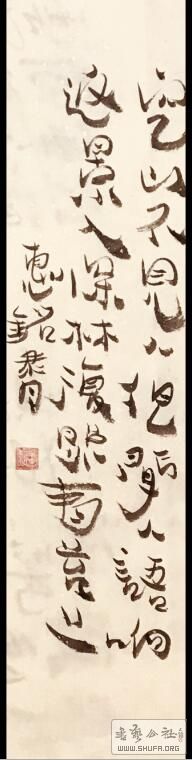 空山不見人但聞人語响
返景入深林復照青苔上
惠銘
書藝公社
WWW.SHUFA.ORG